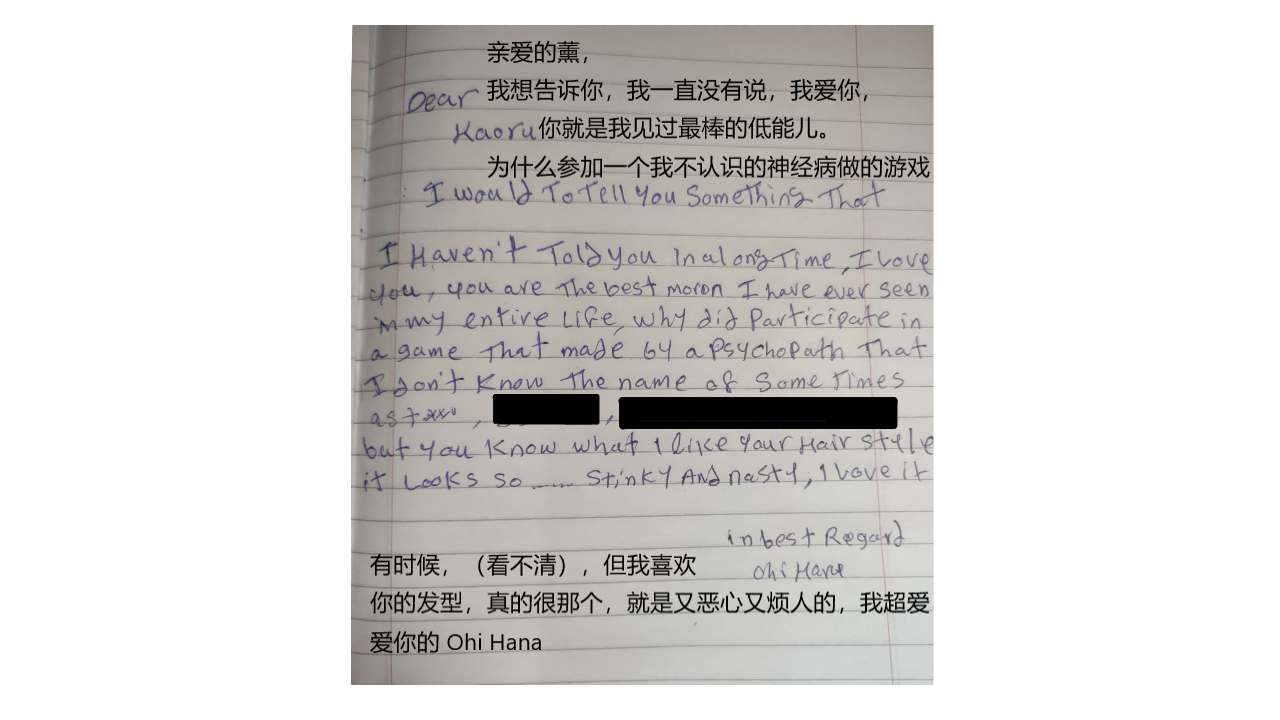 亲爱的薰，
我想告诉你，我一直没有说，我爱你，
Dear
Kaoru 你就是我见过最棒的低能儿。
为什么参加一个我不认识的神经病做的游戏
I would To Tell You Something That
I Haven't Told you In a long Time, I Love
you, you are The best moron I have ever seen
in my entire Life, why did Participate in
a game That made by a Psychopath That
I don't Know The name of Some Times
but you Know what I like your Hair style
it Looks so ...... Stinky And nasty, I love it
in best Regard
Ohi Hane
有时候，（看不清），但我喜欢
你的发型，真的很那个，就是又恶心又烦人的，我超爱
爱你的 Ohi Hana